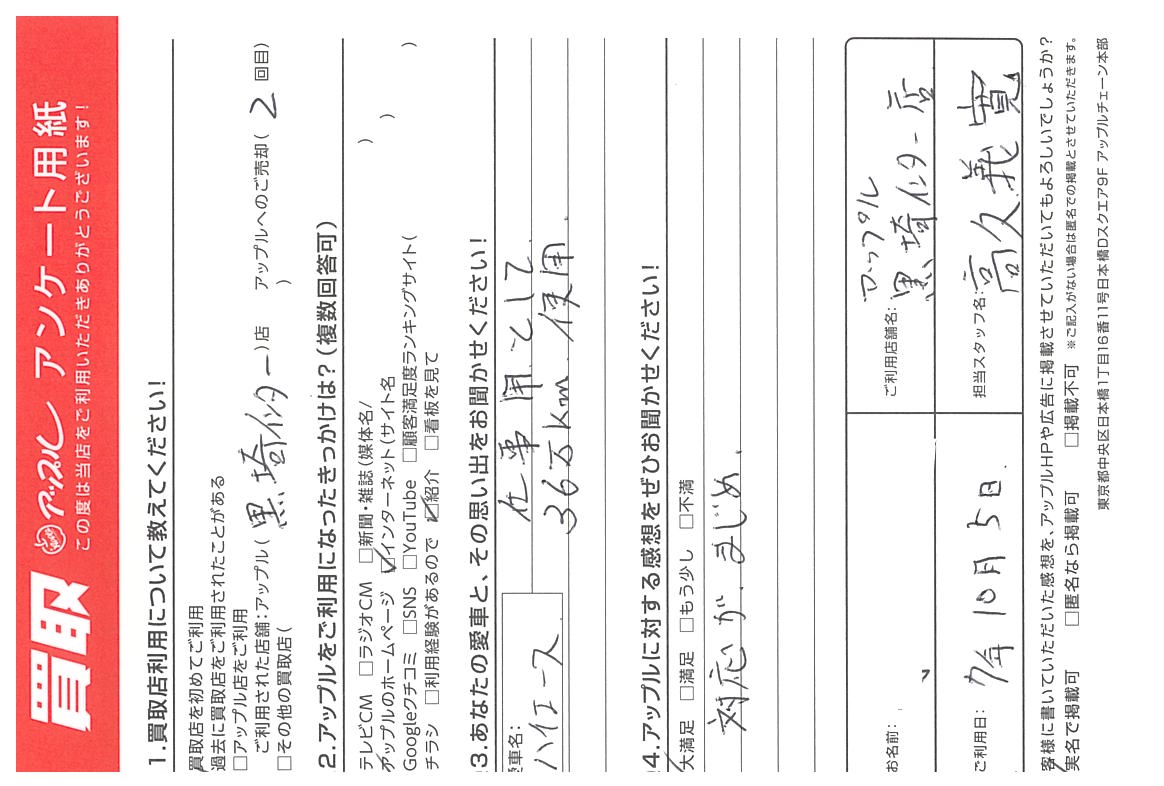 買取 アップル アンケート用紙
この度は当店をご利用いただきありがとうございます!
1.買取店利用について教えてください!
買取店を初めてご利用
過去に買取店をご利用されたことがある
□アップル店をご利用
ご利用された店舗:アップル(黒埼インター)店 アップルへのご売却(2回目)
□その他の買取店( )
2.アップルをご利用になったきっかけは?(複数回答可)
テレビCM □ラジオCM □新聞・雑誌(媒体名/ )
アップルのホームページ □インターネット(サイト名 )
Googleクチコミ □SNS □YouTube □顧客満足度ランキングサイト( )
チラシ □利用経験があるので □紹介 □看板を見て
3.あなたの愛車と、その思い出をお聞かせください!
愛車名:
ハイエース
仕事用として
36万km 使用
4.アップルに対する感想をぜひお聞かせください!
大満足 □満足 □もう少し □不満
対応が まじめ
お名前:
ご利用店舗名:
アップル
黒埼インター店
ご利用日: 7年10月5日
担当スタッフ名: 高久義寛
客様に書いていただいた感想を、アップルHPや広告に掲載させていただいてもよろしいでしょうか?
実名で掲載可 □匿名なら掲載可 □掲載不可 ※ご記入がない場合は匿名での掲載とさせていただきます。
東京都中央区日本橋1丁目16番11号日本橋Dスクエア9F アップルチェーン本部